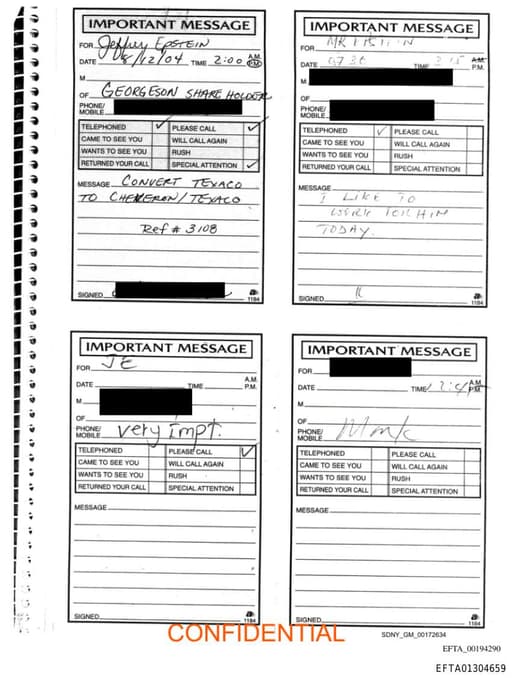 IMPORTANT MESSAGE
FOR Jeffrey EPSTEIN
DATE 8/12/04 TIME 2:00 A.M. P.M.
M
OF GEORGESON SHARE HOLDER
PHONE/ MOBILE
TELEPHONED ✓ PLEASE CALL ✓
CAME TO SEE YOU WILL CALL AGAIN
WANTS TO SEE YOU RUSH
RETURNED YOUR CALL SPECIAL ATTENTION ✓
MESSAGE CONVERT TEXACO
TO CHEVERON/TEXACO
Ref # 3108
SIGNED
1184
IMPORTANT MESSAGE
FOR
DATE TIME A.M. P.M.
M
OF
PHONE/ MOBILE
TELEPHONED ✓ PLEASE CALL
CAME TO SEE YOU WILL CALL AGAIN
WANTS TO SEE YOU RUSH
RETURNED YOUR CALL SPECIAL ATTENTION
MESSAGE
I LIKE TO
WORK FOR HIM
TODAY.
SIGNED
1184
IMPORTANT MESSAGE
FOR JE
DATE TIME A.M. P.M.
M
OF
PHONE/ MOBILE very impt.
TELEPHONED PLEASE CALL ✓
CAME TO SEE YOU WILL CALL AGAIN
WANTS TO SEE YOU RUSH
RETURNED YOUR CALL SPECIAL ATTENTION
MESSAGE
SIGNED
1184
IMPORTANT MESSAGE
FOR
DATE TIME A.M. P.M.
M
OF
PHONE/ MOBILE
TELEPHONED PLEASE CALL
CAME TO SEE YOU WILL CALL AGAIN
WANTS TO SEE YOU RUSH
RETURNED YOUR CALL SPECIAL ATTENTION
MESSAGE
SIGNED
1184
CONFIDENTIAL
SDNY_GM_00172634
EFTA_00194290
EFTA01304659